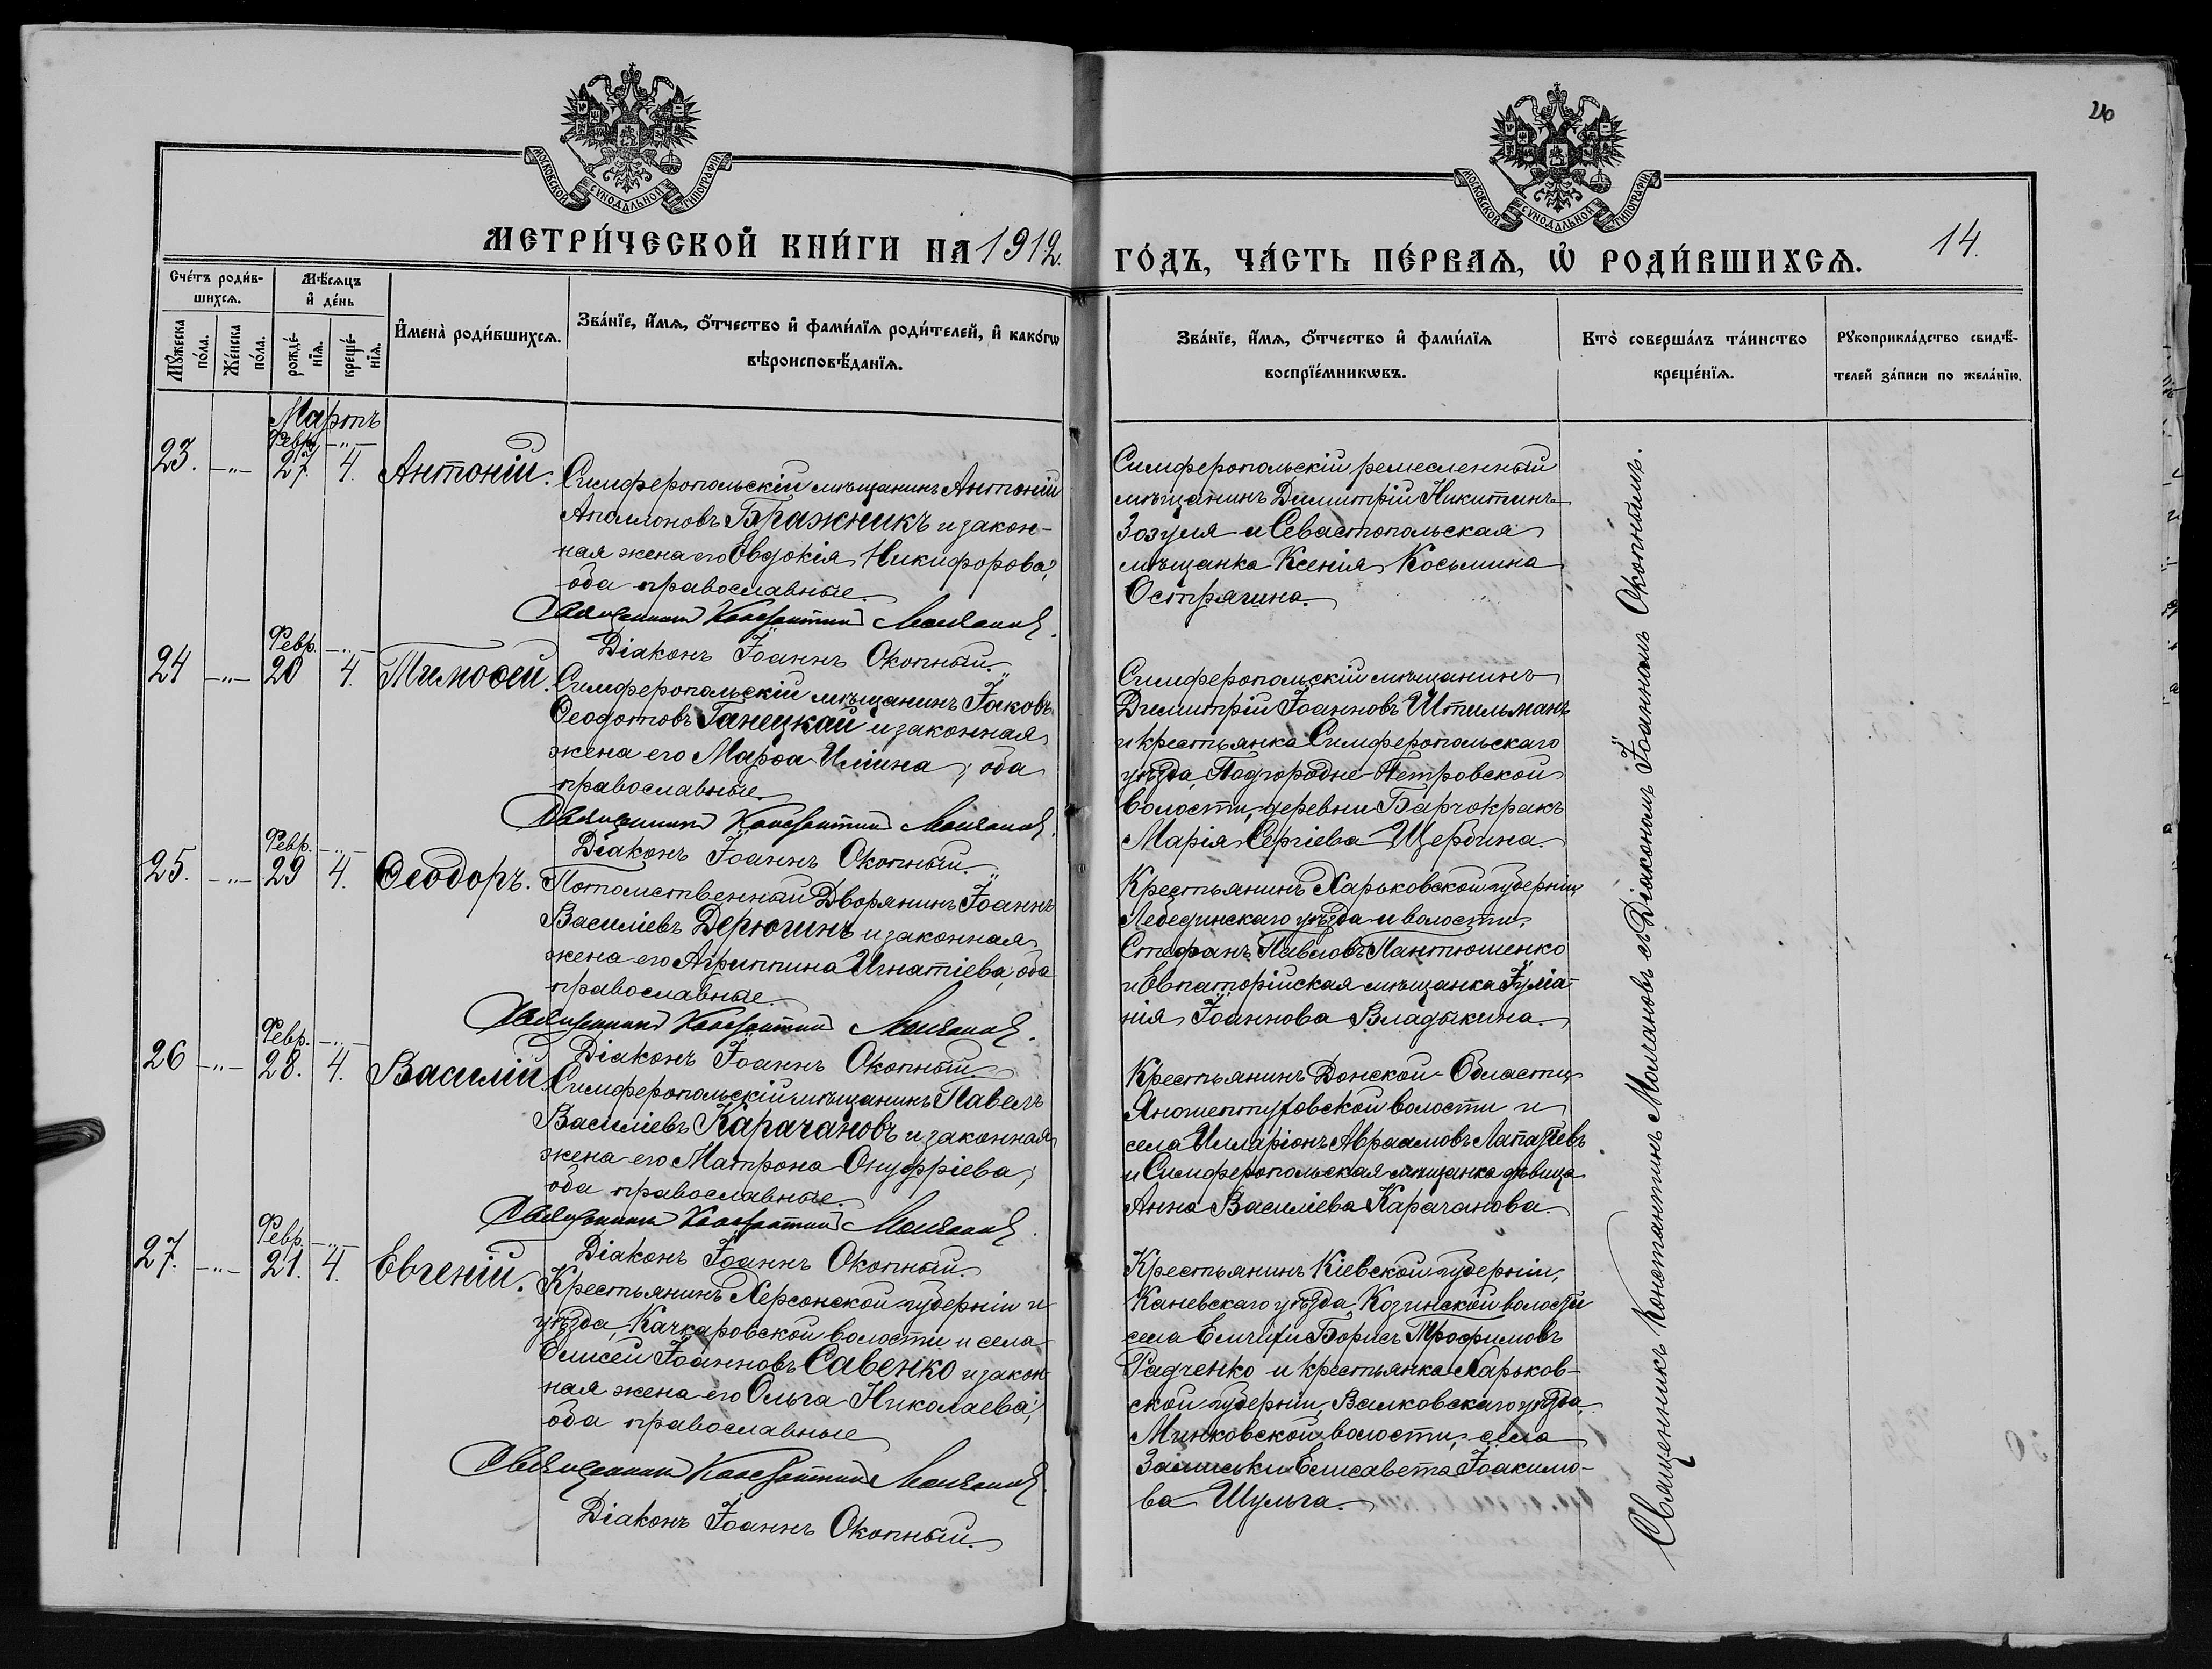 26
МОСКОВСКОЙ СѴНОДАЛЬНОЙ ТИПОГРАФІИ
МОСКОВСКОЙ СѴНОДАЛЬНОЙ ТИПОГРАФІИ
МЕТРИ́ЧЕСКОЙ КНИ́ГИ НА 1912.
ГО́ДЪ, ЧА́СТЬ ПЕ́РВАѦ, Ѡ РОДИ́ВШИХСѦ.
14.
Сче́тъ роди́в-
шихсѧ.
Мꙋ́жеска
по́ла.
Же́нска
по́ла.
Мѣ́сѧцъ
и҆ де́нь
рожде́-
нїѧ.
креще́-
нїѧ.
И҆мена̀ роди́вшихсѧ.
Зва́нїе, и҆́мѧ, ѻ҆́тчество и҆ фами́лїѧ роди́телей, и҆ како́гѡ
вѣроисповѣ́данїѧ.
Зва́нїе, и҆́мѧ, ѻ҆́тчество и҆ фами́лїѧ
воспрїе́мникѡвъ.
Кто̀ соверша́лъ та́инство
креще́нїѧ.
Рꙋкоприкла́дство свидѣ́-
телей за́писи по жела́нїю.
Мартъ
Февр. —"—
23. —"— 27. 4. Антоній.
Симферопольскій мѣщанинъ Антоній
Аполлоновъ Бражникъ и закон-
ная жена его Евдокія Никифорова,
оба православные.
Священникъ Константинъ Молчановъ.
Діаконъ Іоаннъ Окопный.
Симферопольскій ремесленный
мѣщанинъ Димитрій Никитинъ
Зозуля и Севастопольская
мѣщанка Ксенія Косьмина
Острягина.
Февр. —"—
24 —"— 20 4. Тимоѳей.
Симферопольскій мѣщанинъ Іаковъ
Ѳеодотовъ Ганецкай и законная
жена его Марѳа Иліина, оба
православные.
Священникъ Константинъ Молчановъ.
Діаконъ Іоаннъ Окопный.
Симферопольскій мѣщанинъ
Димитрій Іоанновъ Штильманъ
и крестьянка Симферопольскаго
уѣзда, Подгородне-Петровской
волости, деревни Барчокракъ
Марія Сергіева Щербина.
Февр. —"—
25. —"— 29 4. Ѳеодоръ.
Потомственный Дворянинъ Іоаннъ
Василіевъ Дерюгинъ и законная
жена его Агриппина Игнатіева, оба
православные.
Священникъ Константинъ Молчановъ.
Діаконъ Іоаннъ Окопный.
Крестьянинъ Харьковской губерніи
Лебединскаго уѣзда и волости,
Стефанъ Павловъ Пантюшенко
и Евпаторійская мѣщанка Іуліа-
нія Іоаннова Владыкина.
Февр. —"—
26 —"— 28. 4. Василій.
Симферопольскій мѣщанинъ Павелъ
Василіевъ Карачановъ и законная
жена его Матрона Онуфріева,
оба православные.
Священникъ Константинъ Молчановъ.
Діаконъ Іоаннъ Окопный.
Крестьянинъ Донской Области
волости и
села Илларіонъ Авраамовъ
и Симферопольская мѣщанка дѣвица
Анна Василіева Карачанова.
Февр. —"—
27. —"— 21. 4. Евгеній.
Крестьянинъ Херсонской губерніи и
уѣзда, Качкаровской волости и села
Елисей Іоанновъ Савенко и закон-
ная жена его Ольга Николаева,
оба православные
Священникъ Константинъ Молчановъ.
Діаконъ Іоаннъ Окопный.
Крестьянинъ Кіевской губерніи,
Каневскаго уѣзда, Козинской волости
села Борисъ Трофимовъ
Радченко и крестьянка Харьков-
ской губерніи, Валковскаго уѣзда,
Минковской волости, села
Елисавета Іоакимо-
ва Шульга.
Священникъ Константинъ Молчановъ съ Діакономъ Іоанномъ Окопнымъ.